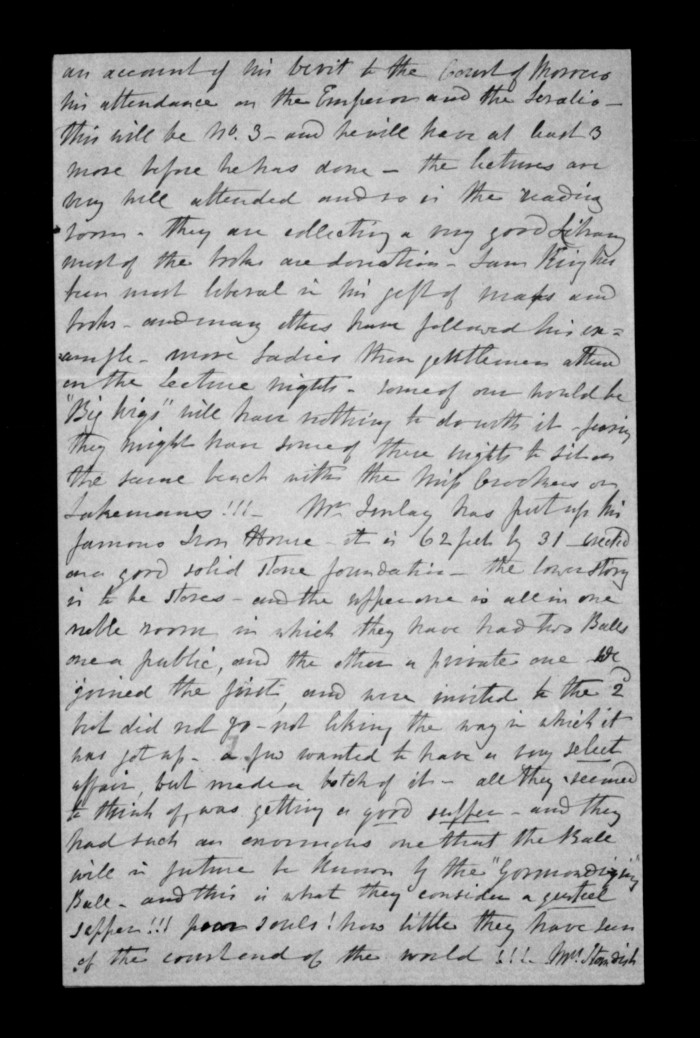 an account of his visit to the Court of Morocco
his attendance on the Emperor and the Seralio -
this will be No. 3 - and he will have at least 3
more before he has done - the lectures are
very well attended and so is the reading
room - they are collecting a very good Library
most of the books are donations - Sam King has
been most liberal in his gift of maps and
books - and many others have followed his ex=
ample - more Ladies than gentlemen attend
on the Lecture nights - some of our would be
"Big Wigs" will have nothing to do with it - fearing
they might have some of these nights to sit on
the same bench with the Miss or
!!! - Mr has put up his
famous Iron House - it is 62 feet by 31 - erected
on a good solid stone foundation - the lower story
is to be stores - and the upper one is all in one
noble room in which they have had two Balls
one a public, and the other a private one We
joined the first, and were invited to the 2d
but did not go - not liking the way in which it
was got up - a few wanted to have a very select
affair, but made a botch of it - all they seemed
to think of, was getting a good supper - and they
had such an enormous one that the Ball
will in future be known by the "Gormondizing"
Ball - and this is what they consider a genteel
supper!!! poor souls! how little they have seen
of the court end of the world !!! - Mrs Standish